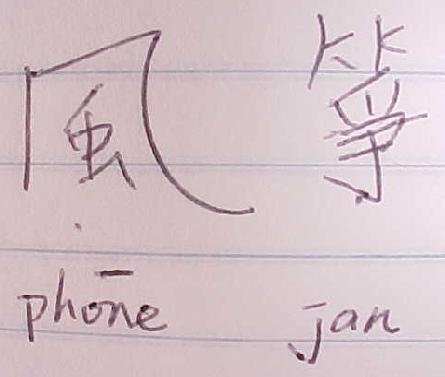 風 箏
phōne jan